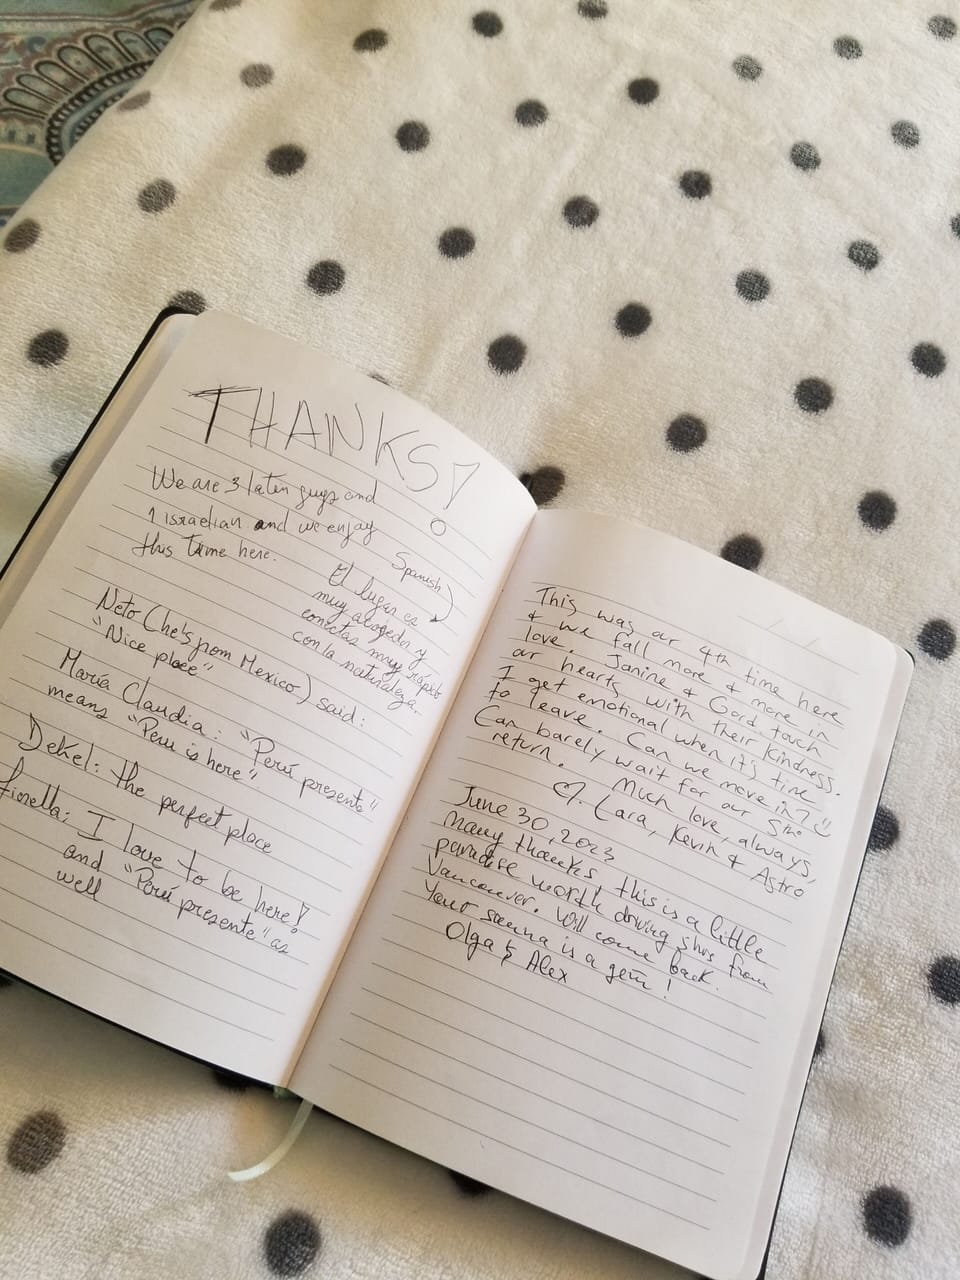 THANKS!
We are 3 laten guys and
1 israelian and we enjoy
this time here.
Spanish
El lugar es
muy acogedor y
conectas muy rápido
con la naturaleza.
Neto (he's from Mexico) said:
"Nice place"
María Claudia: "Perú presente"
means "Peru is here".
Dekel: the perfect place
fiorella: I love to be here!
and "Perú presente" as
well
This was our 4th time here
& we fall more & more in
love. Janine & Gord touch
our hearts with their kindness.
I get emotional when it's time
to leave. Can we move in?
Can barely wait for our 5th
return. Much love, always,
Lara, Kevin & Astro
June 30, 2023
Many thanks this is a little
paradise worth driving 5hrs from
Vancouver. Will come back.
Your sauna is a gem!
Olga & Alex